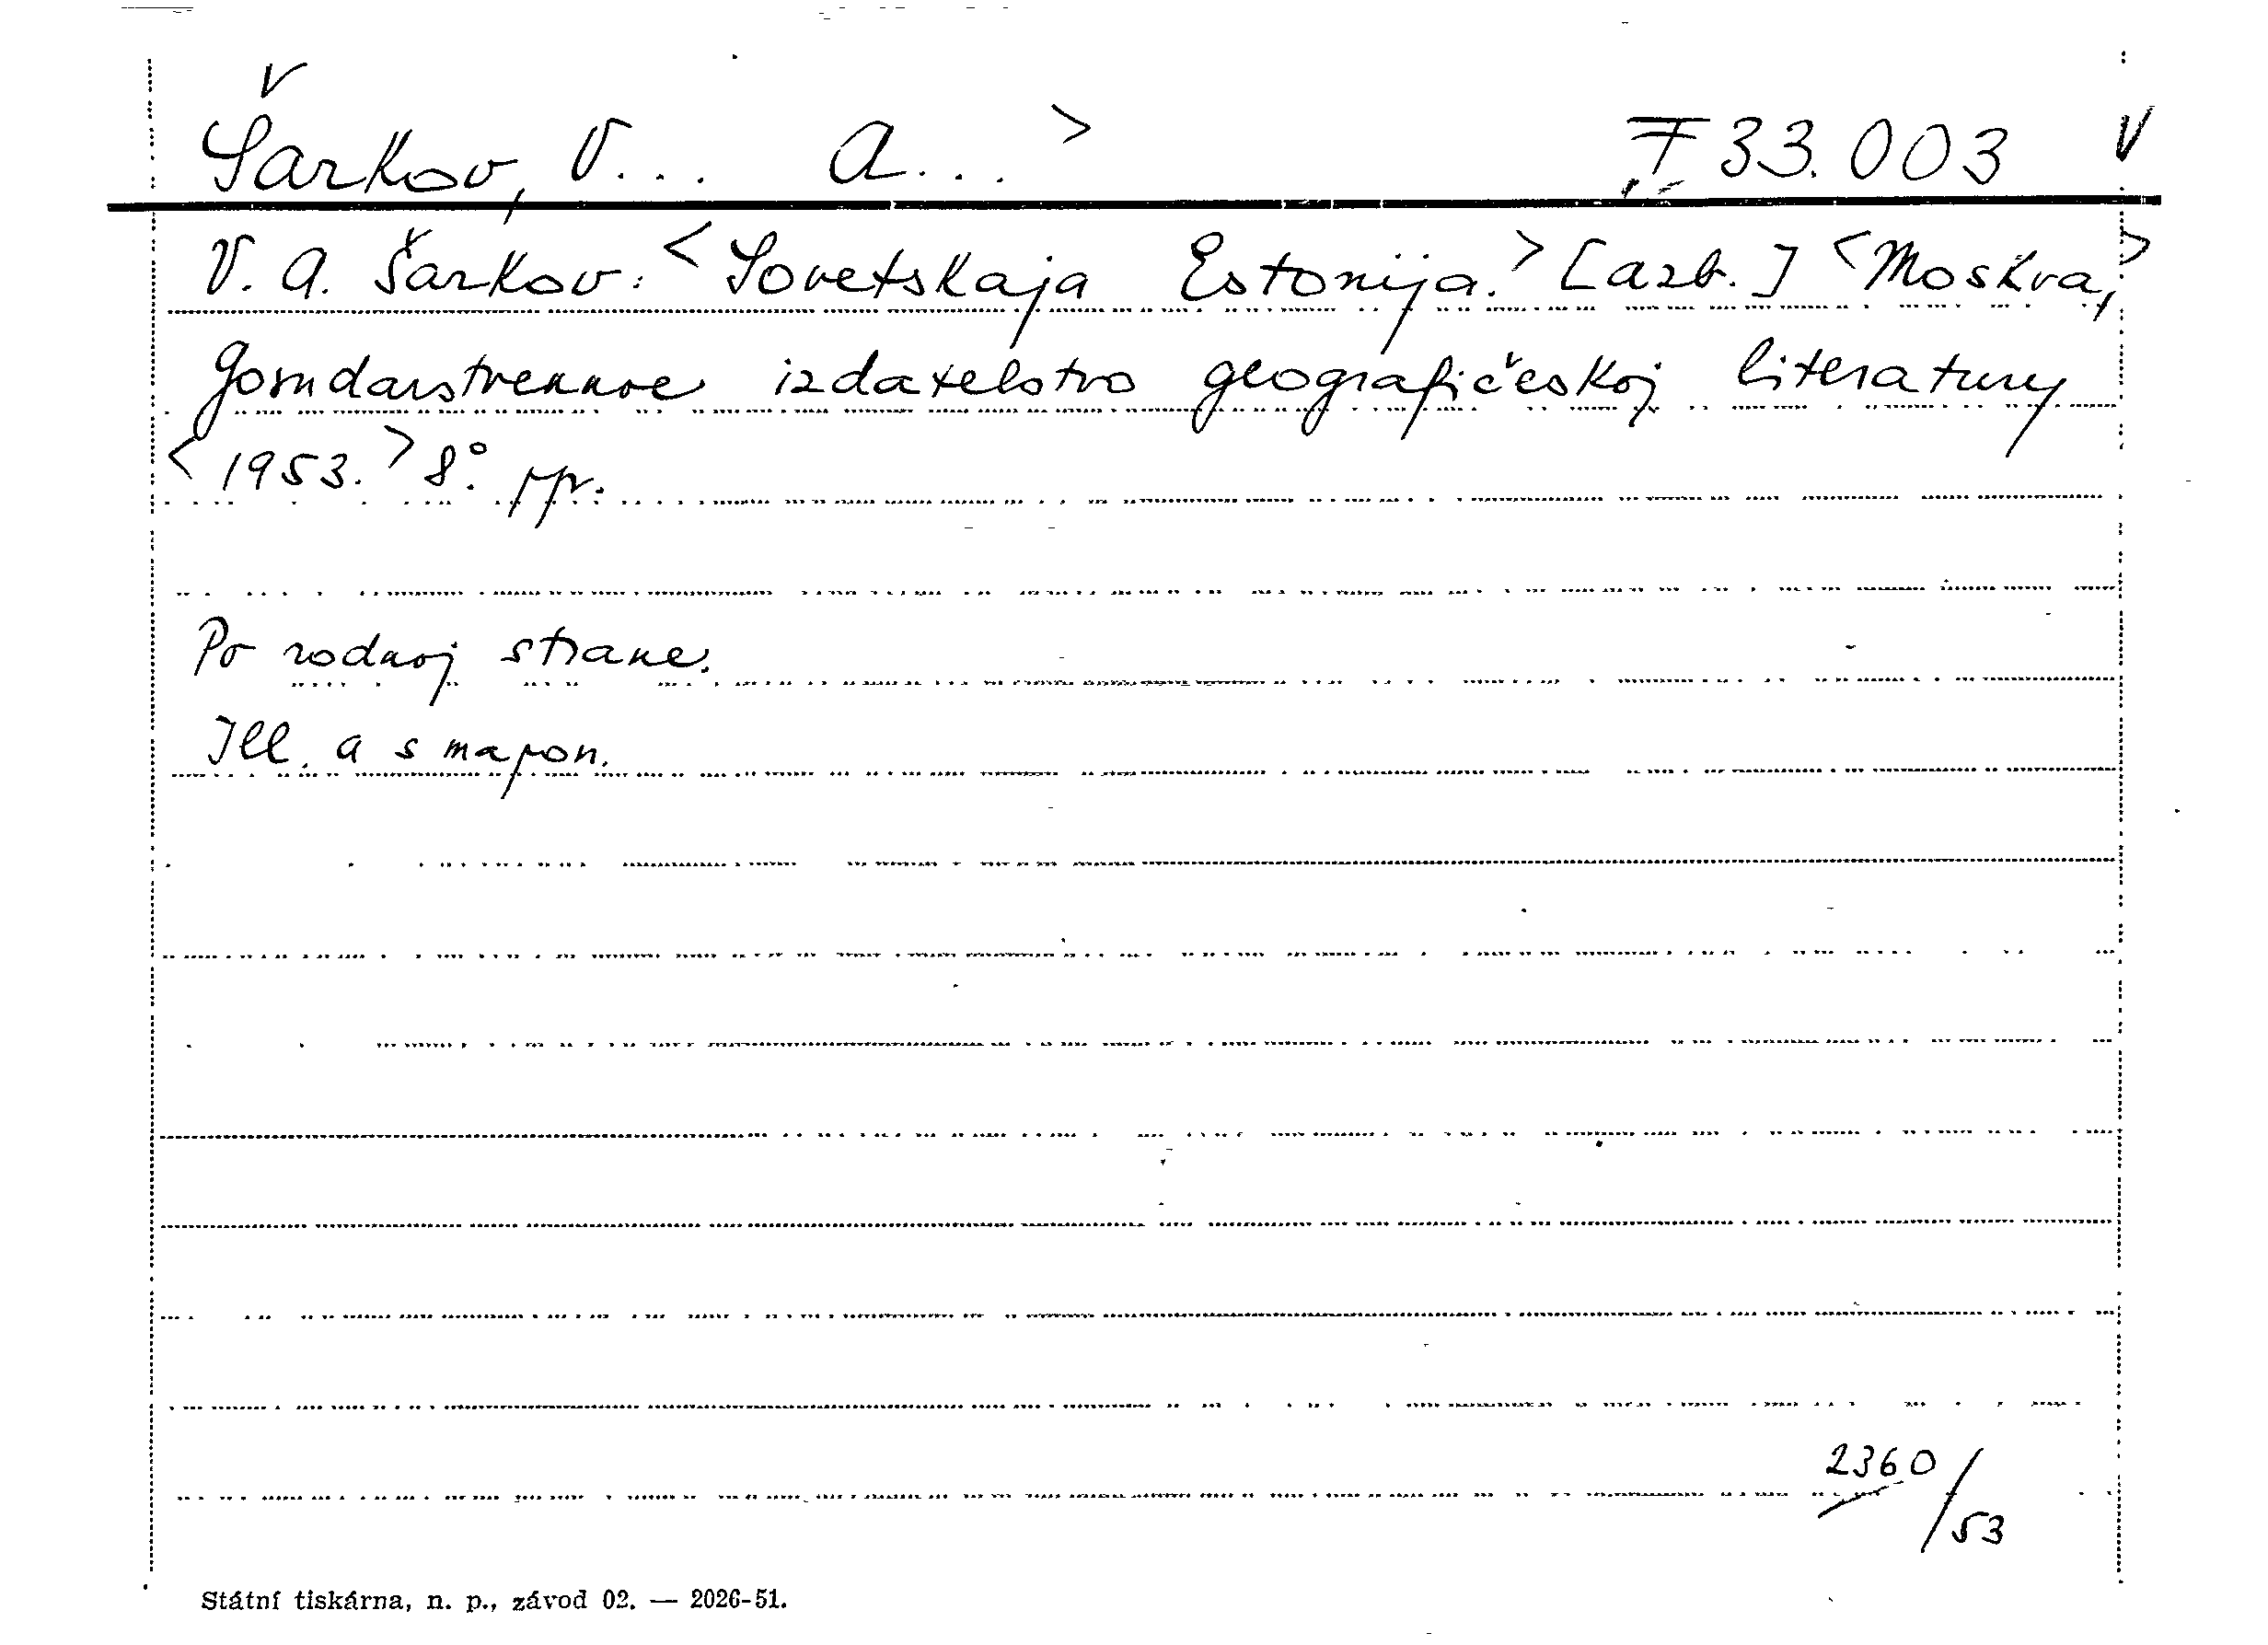 Šarkov, V... A... > F 33.003 V
V. A. Šarkov: <Sovetskaja Estonija.> [azb.] <Moskva,>
Gosudarstvennoe izdatelstvo geografičeskoj literatury
<1953.> 8°. ppr.
Po rodnoj strane.
Ill. a s mapou.
2360/53
Státní tiskárna, n. p., závod 02. — 2026-51.